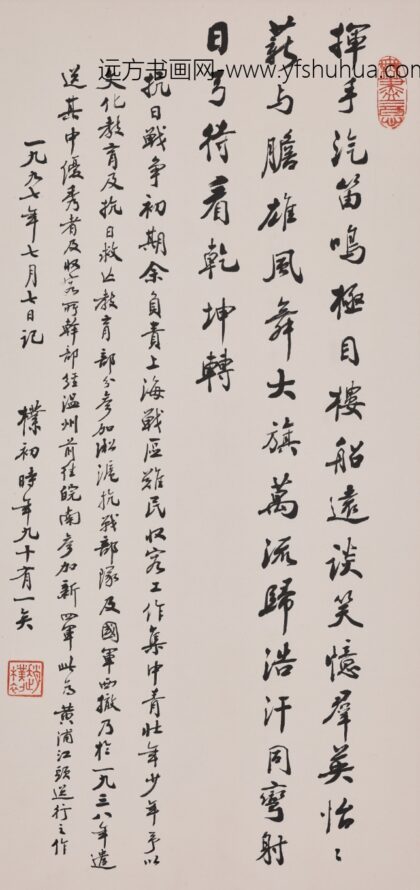 远方书画网-www.yfshuhua.com
揮手汽笛鳴極目樓船遠談笑憶羣英怡〻
薪与膽雄風舞大旗萬流歸浩汗同彎射
日弓待看乾坤轉
抗日戰争初期余負責上海戰區難民收容工作集中青壯年少年予以
文化教育及抗日救亡教育部分參加淞滬抗戰部隊及國軍西撤乃於一九三八年遣
送其中優秀者及收容所幹部經温州前往皖南參加新四軍此为黄浦江頭送行之作
一九九七年七月七日記 樸初時年九十有一矣
無盡意
趙樸初